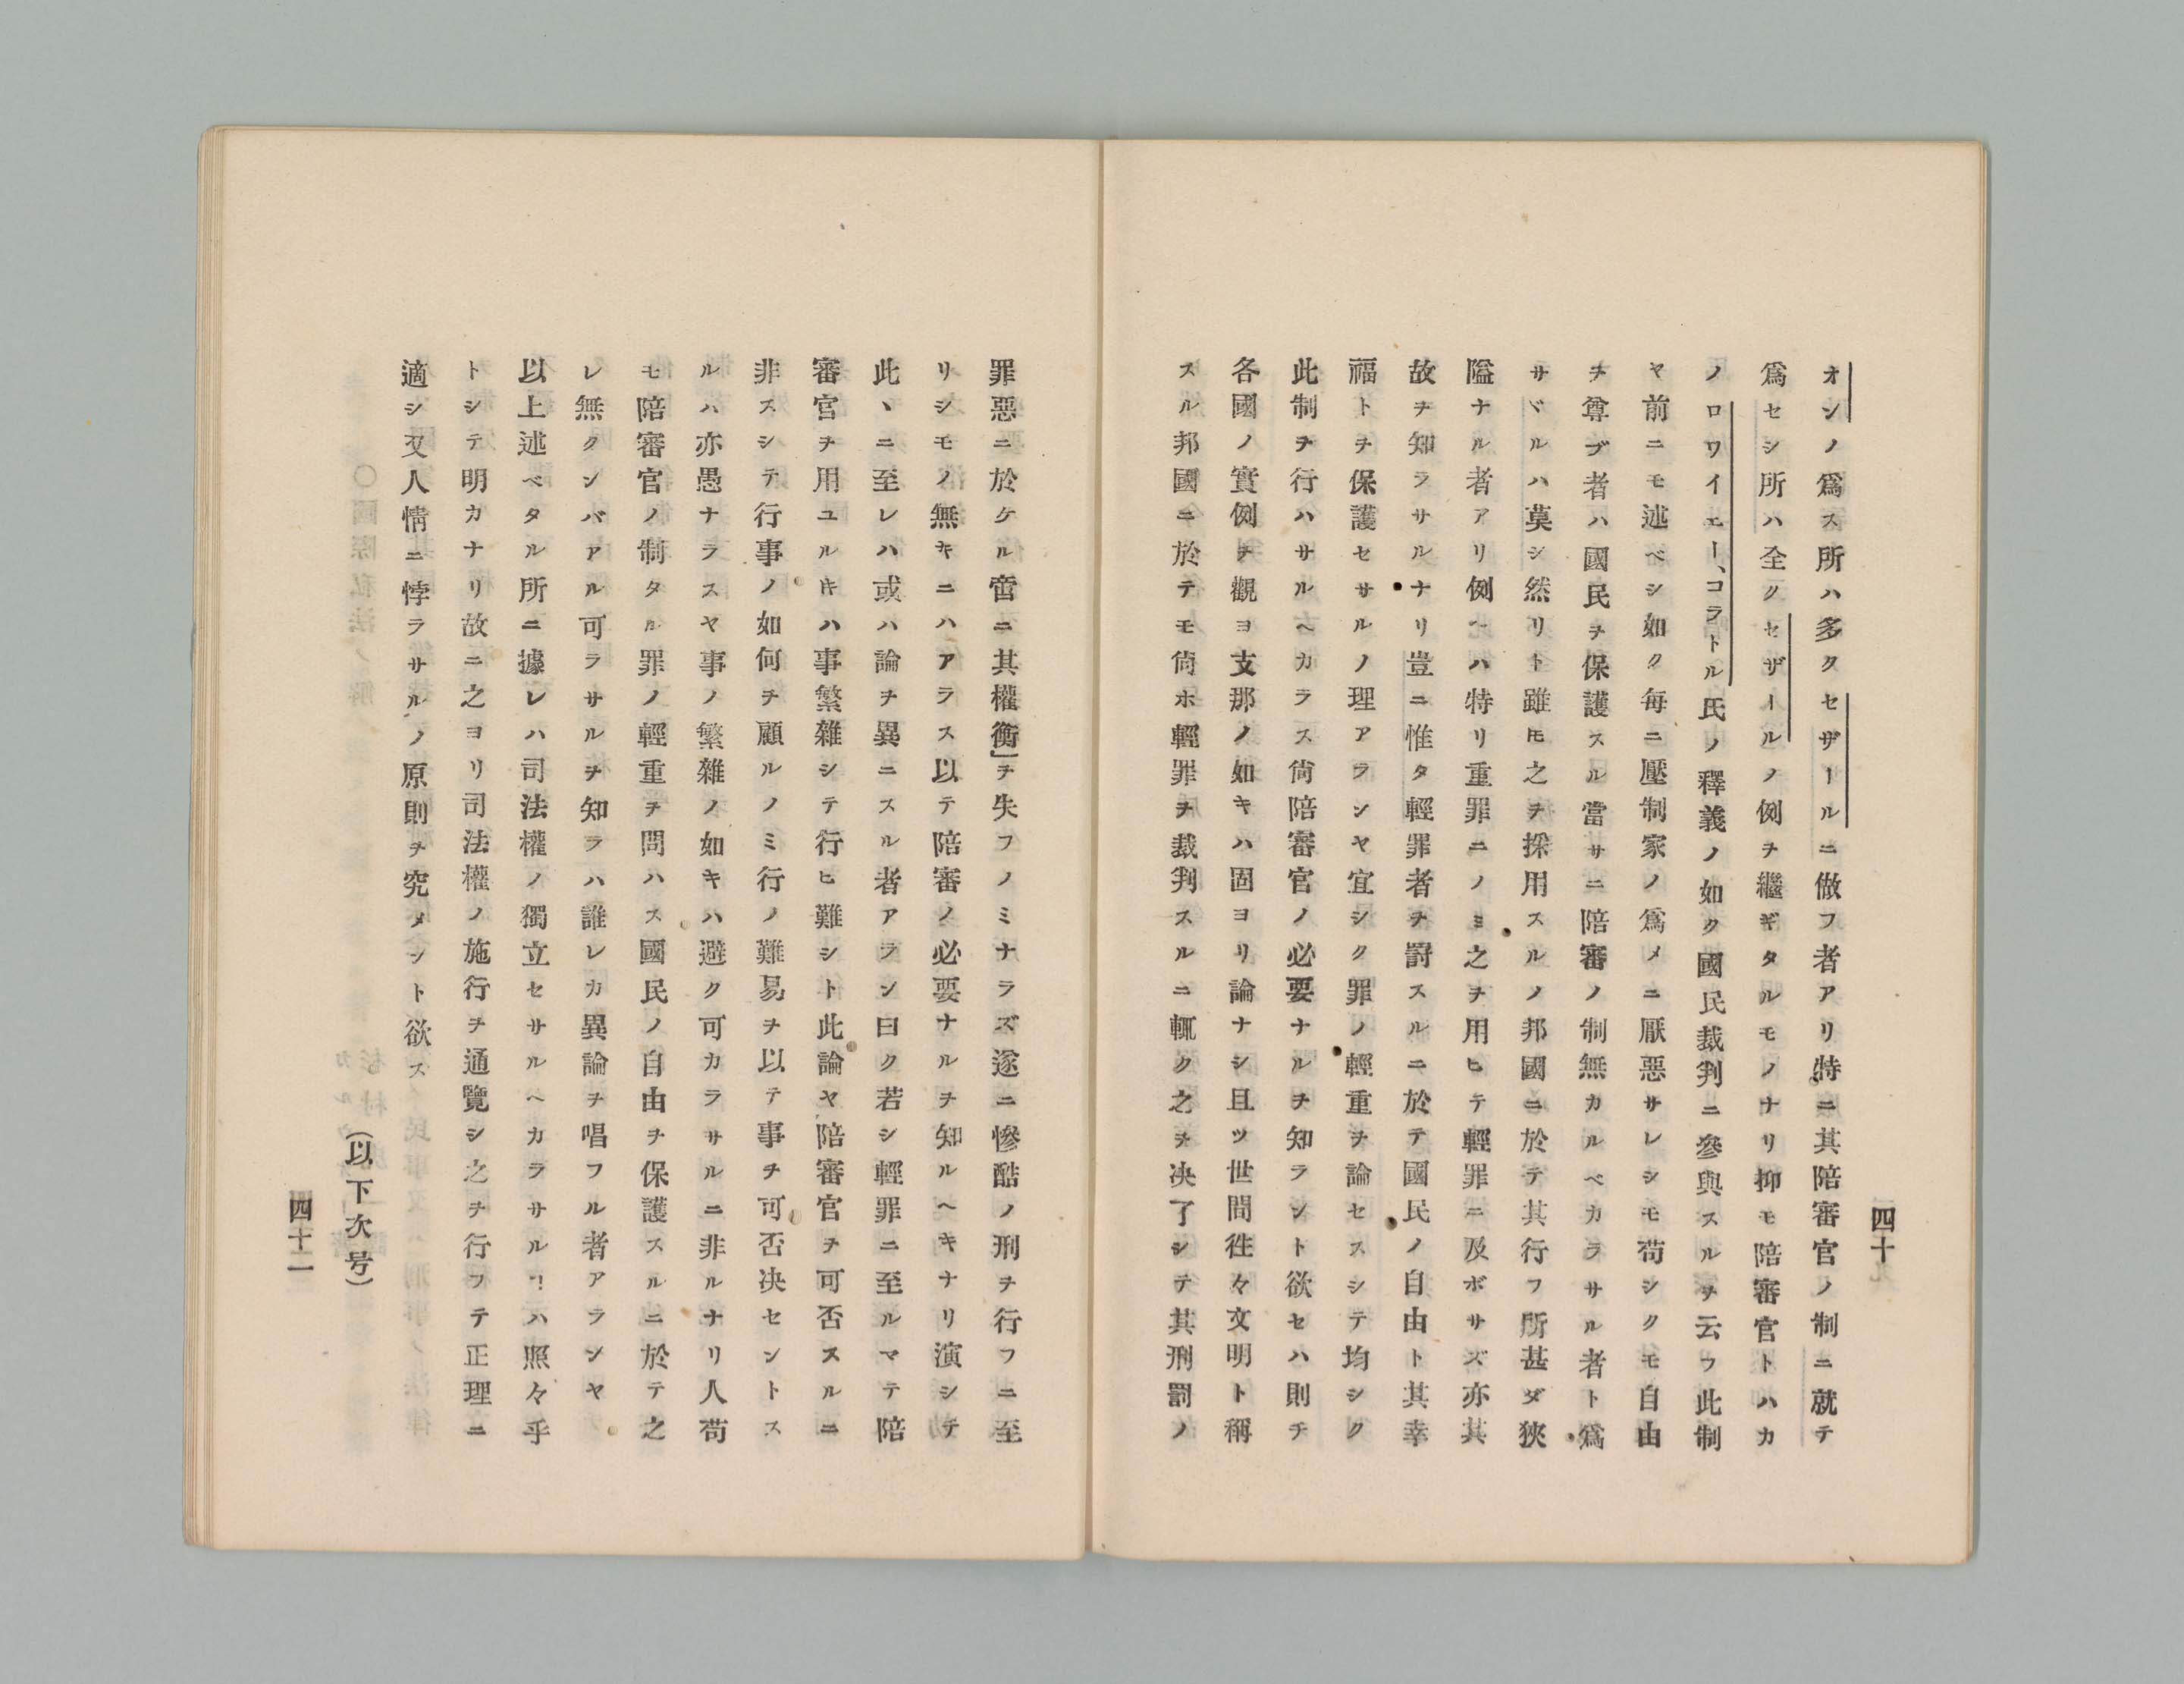 四十
オンノ爲ス所ハ多クセザールニ倣フ者アリ特ニ其陪審官ノ制ニ就テ
爲セシ所ハ全クセザールノ例ヲ繼ギタルモノナリ抑モ陪審官トハカ
ノロワイエー、コラトル氏ノ釋義ノ如ク國民裁判ニ參與スルヲ云フ此制
ヤ前ニモ述ベシ如ク毎ニ壓制家ノ爲メニ厭惡サレシモ苟シクモ自由
ヲ尊ブ者ハ國民ヲ保護スル當サニ陪審ノ制無カルベカラサル者ト爲
サヾルハ莫シ然リト雖𪜈之ヲ採用スルノ邦國ニ於テ其行フ所甚ダ狹
隘ナル者アリ例ヘハ特リ重罪ニノミ之ヲ用ヒテ輕罪ニ及ボサズ亦其
故ヲ知ラサルナリ豈ニ惟タ輕罪者ヲ罸スルニ於テ國民ノ自由ト其幸
福トヲ保護セサルノ理アランヤ宜シク罪ノ輕重ヲ論セスシテ均シク
此制ヲ行ハサルヘカラス尙陪審官ノ必要ナルヲ知ラント欲セハ則チ
各國ノ實例ヲ觀ヨ支那ノ如キハ固ヨリ論ナシ且ツ世間徃々文明ト稱
スル邦國ニ於テモ尙ホ輕罪ヲ裁判スルニ輒ク之ヲ决了シテ其刑罰ノ
罪惡ニ於ケル啻ニ其權衡」ヲ失フノミナラズ遂ニ慘酷ノ刑ヲ行フニ至
リシモノ無キニハアラス以テ陪審ノ必要ナルヲ知ルヘキナリ演シテ
此ヽニ至レハ或ハ論ヲ異ニスル者アラン曰ク若シ輕罪ニ至ルマテ陪
審官ヲ用ユルキハ事繁雜シテ行ヒ難シト此論ヤ陪審官ヲ可否スルニ
非スシテ行事ノ如何ヲ顧ルノミ行ノ難易ヲ以テ事ヲ可否决セントス
ルハ亦愚ナラスヤ事ノ繁雜ノ如キハ避ク可カラサルニ非ルナリ人苟
モ陪審官ノ制タル罪ノ輕重ヲ問ハス國民ノ自由ヲ保護スルニ於テ之
レ無クンバアル可ラサルヲ知ラハ誰レカ異論ヲ唱フル者アランヤ
以上述ベタル所ニ據レハ司法權ノ獨立セサルヘカラサルヿハ照々乎
トシテ明カナリ故ニ之ヨリ司法權ノ施行ヲ通覽シ之ヲ行フテ正理ニ
適シ又人情ニ悖ラサルノ原則ヲ究メント欲ス
（以下次号）
四十二